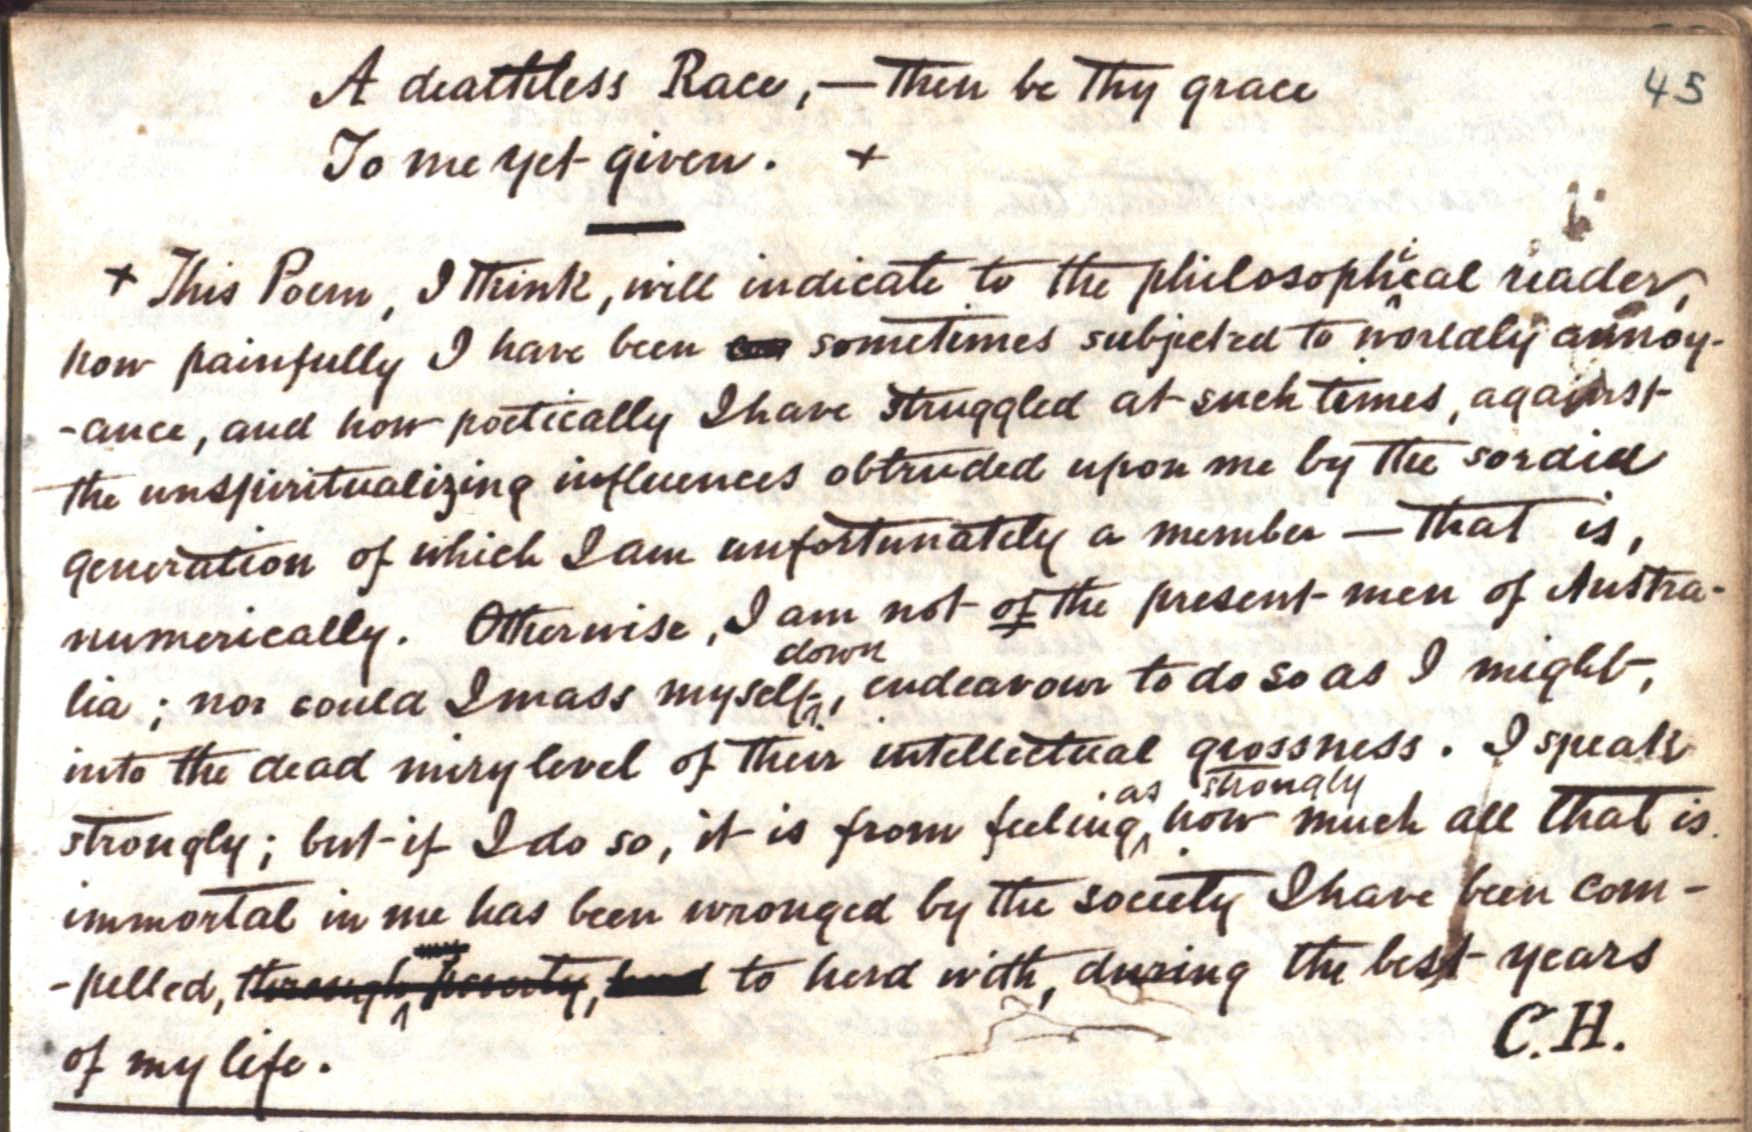 45
A deathless Race, — then be thy grace
To me yet given. +
+ This Poem, I think, will indicate to the philosophical reader,
how painfully I have been sometimes subjected to worldly annoy-
-ance, and how poetically I have struggled at such times, against
the unspiritualizing influences obtruded upon me by the sordid
generation of which I am unfortunately a member — that is,
numerically. Otherwise, I am not of the present men of Austra-
lia; nor could I mass myself down, endeavour to do so as I might,
into the dead miry level of their intellectual grossness. I speak
strongly; but if I do so, it is from feeling as strongly how much all that is
immortal in me has been wronged by the society I have been com-
-pelled, through my poverty, to herd with, during the best years
of my life.
C.H.